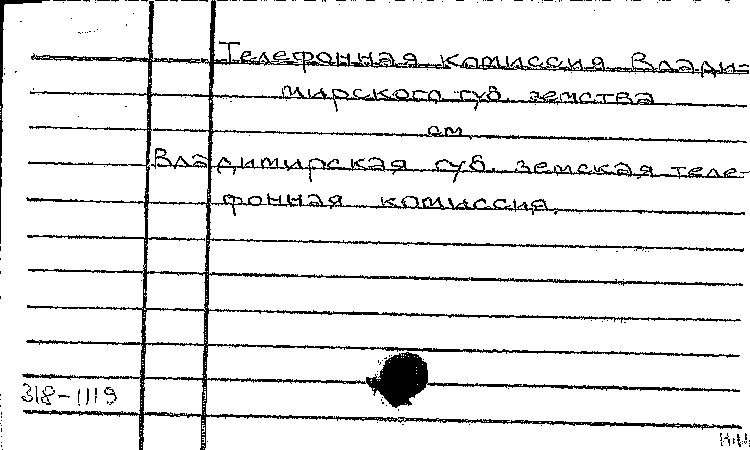 Телефонная комиссия Влади=
мирского губ. земства
см.
Владимирская губ. земская теле-
фонная комиссия.
318-1119